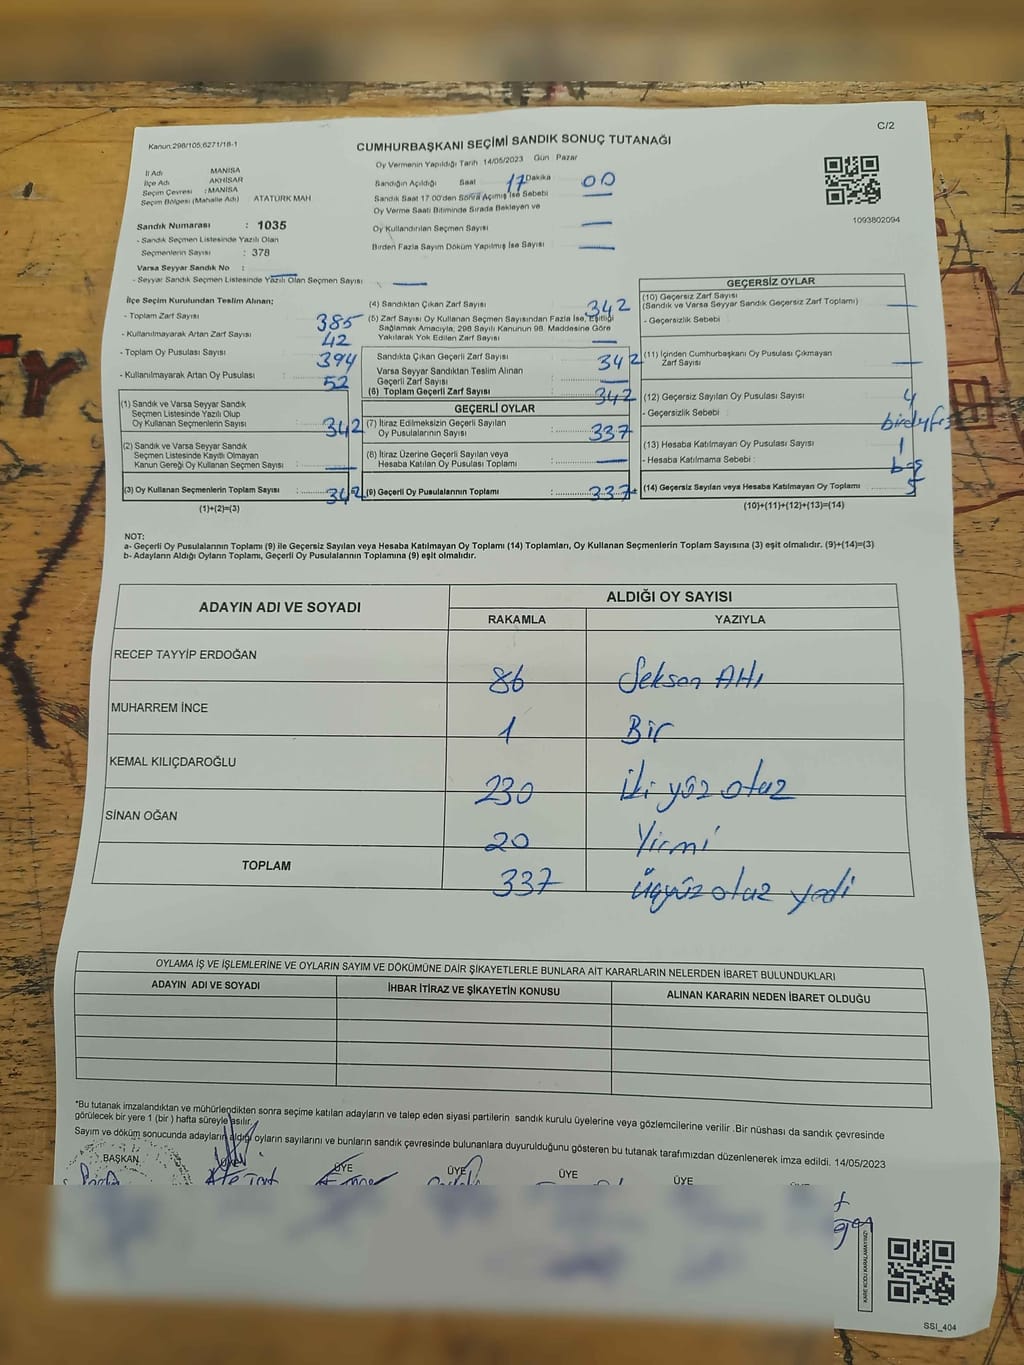 C/2
Kanun,298/105,6271/18-1
CUMHURBAŞKANI SEÇİMİ SANDIK SONUÇ TUTANAĞI
Oy Vermenin Yapıldığı Tarih 14/05/2023 Gün Pazar
İl Adı MANİSA
İlçe Adı AKHİSAR
Seçim Çevresi : MANİSA
Seçim Bölgesi (Mahalle Adı) : ATATÜRK MAH
Sandığın Açıldığı Saat 17 Dakika 00
Sandık Saat 17.00'den Sonra Açılmış İse Sebebi
Oy Verme Saati Bitiminde Sırada Bekleyen ve
Oy Kullandırılan Seçmen Sayısı
Birden Fazla Sayım Döküm Yapılmış İse Sayısı
1093802094
Sandık Numarası : 1035
- Sandık Seçmen Listesinde Yazılı Olan
Seçmenlerin Sayısı : 378
Varsa Seyyar Sandık No :
- Seyyar Sandık Seçmen Listesinde Yazılı Olan Seçmen Sayısı
İlçe Seçim Kurulundan Teslim Alınan;
- Toplam Zarf Sayısı 385
- Kullanılmayarak Artan Zarf Sayısı 42
- Toplam Oy Pusulası Sayısı 394
- Kullanılmayarak Artan Oy Pusulası 52
(1) Sandık ve Varsa Seyyar Sandık
Seçmen Listesinde Yazılı Olup
Oy Kullanan Seçmenlerin Sayısı 342
(2) Sandık ve Varsa Seyyar Sandık
Seçmen Listesinde Kayıtlı Olmayan
Kanun Gereği Oy Kullanan Seçmen Sayısı
(3) Oy Kullanan Seçmenlerin Toplam Sayısı 342
(1)+(2)=(3)
(4) Sandıktan Çıkan Zarf Sayısı 342
(5) Zarf Sayısı Oy Kullanan Seçmen Sayısından Fazla İse, Eşitliği
Sağlamak Amacıyla, 298 Sayılı Kanunun 98. Maddesine Göre
Yakılarak Yok Edilen Zarf Sayısı
Sandıkta Çıkan Geçerli Zarf Sayısı 342
Varsa Seyyar Sandıktan Teslim Alınan
Geçerli Zarf Sayısı
(6) Toplam Geçerli Zarf Sayısı 342
GEÇERLİ OYLAR
(7) İtiraz Edilmeksizin Geçerli Sayılan
Oy Pusulalarının Sayısı 337
(8) İtiraz Üzerine Geçerli Sayılan veya
Hesaba Katılan Oy Pusulası Toplamı
(9) Geçerli Oy Pusulalarının Toplamı 337
GEÇERSİZ OYLAR
(10) Geçersiz Zarf Sayısı
(Sandık ve Varsa Seyyar Sandık Geçersiz Zarf Toplamı)
- Geçersizlik Sebebi
(11) İçinden Cumhurbaşkanı Oy Pusulası Çıkmayan
Zarf Sayısı
(12) Geçersiz Sayılan Oy Pusulası Sayısı 4
- Geçersizlik Sebebi
(13) Hesaba Katılmayan Oy Pusulası Sayısı 1
- Hesaba Katılmama Sebebi : boş
(14) Geçersiz Sayılan veya Hesaba Katılmayan Oy Toplamı 5
(10)+(11)+(12)+(13)=(14)
NOT:
a- Geçerli Oy Pusulalarının Toplamı (9) ile Geçersiz Sayılan veya Hesaba Katılmayan Oy Toplamı (14) Toplamları, Oy Kullanan Seçmenlerin Toplam Sayısına (3) eşit olmalıdır. (9)+(14)=(3)
b- Adayların Aldığı Oyların Toplamı, Geçerli Oy Pusulalarının Toplamına (9) eşit olmalıdır.
ADAYIN ADI VE SOYADI
ALDIĞI OY SAYISI
RAKAMLA YAZIYLA
RECEP TAYYİP ERDOĞAN 86 Seksen Altı
MUHARREM İNCE 1 Bir
KEMAL KILIÇDAROĞLU 230 İki yüz otuz
SİNAN OĞAN 20 Yirmi
TOPLAM 337 üçyüz otuz yedi
OYLAMA İŞ VE İŞLEMLERİNE VE OYLARIN SAYIM VE DÖKÜMÜNE DAİR ŞİKAYETLERLE BUNLARA AİT KARARLARIN NELERDEN İBARET BULUNDUKLARI
ADAYIN ADI VE SOYADI İHBAR İTİRAZ VE ŞİKAYETİN KONUSU ALINAN KARARIN NEDEN İBARET OLDUĞU
*Bu tutanak imzalandıktan ve mühürlendikten sonra seçime katılan adayların ve talep eden siyasi partilerin sandık kurulu üyelerine veya gözlemcilerine verilir .Bir nüshası da sandık çevresinde
görülecek bir yere 1 (bir ) hafta süreyle asılır.
Sayım ve döküm sonucunda adayların aldığı oyların sayılarını ve bunların sandık çevresinde bulunanlara duyurulduğunu gösteren bu tutanak tarafımızdan düzenlenerek imza edildi. 14/05/2023
BAŞKAN ÜYE ÜYE ÜYE ÜYE
KARE KODU KARALAMAYINIZ!
SSI_404